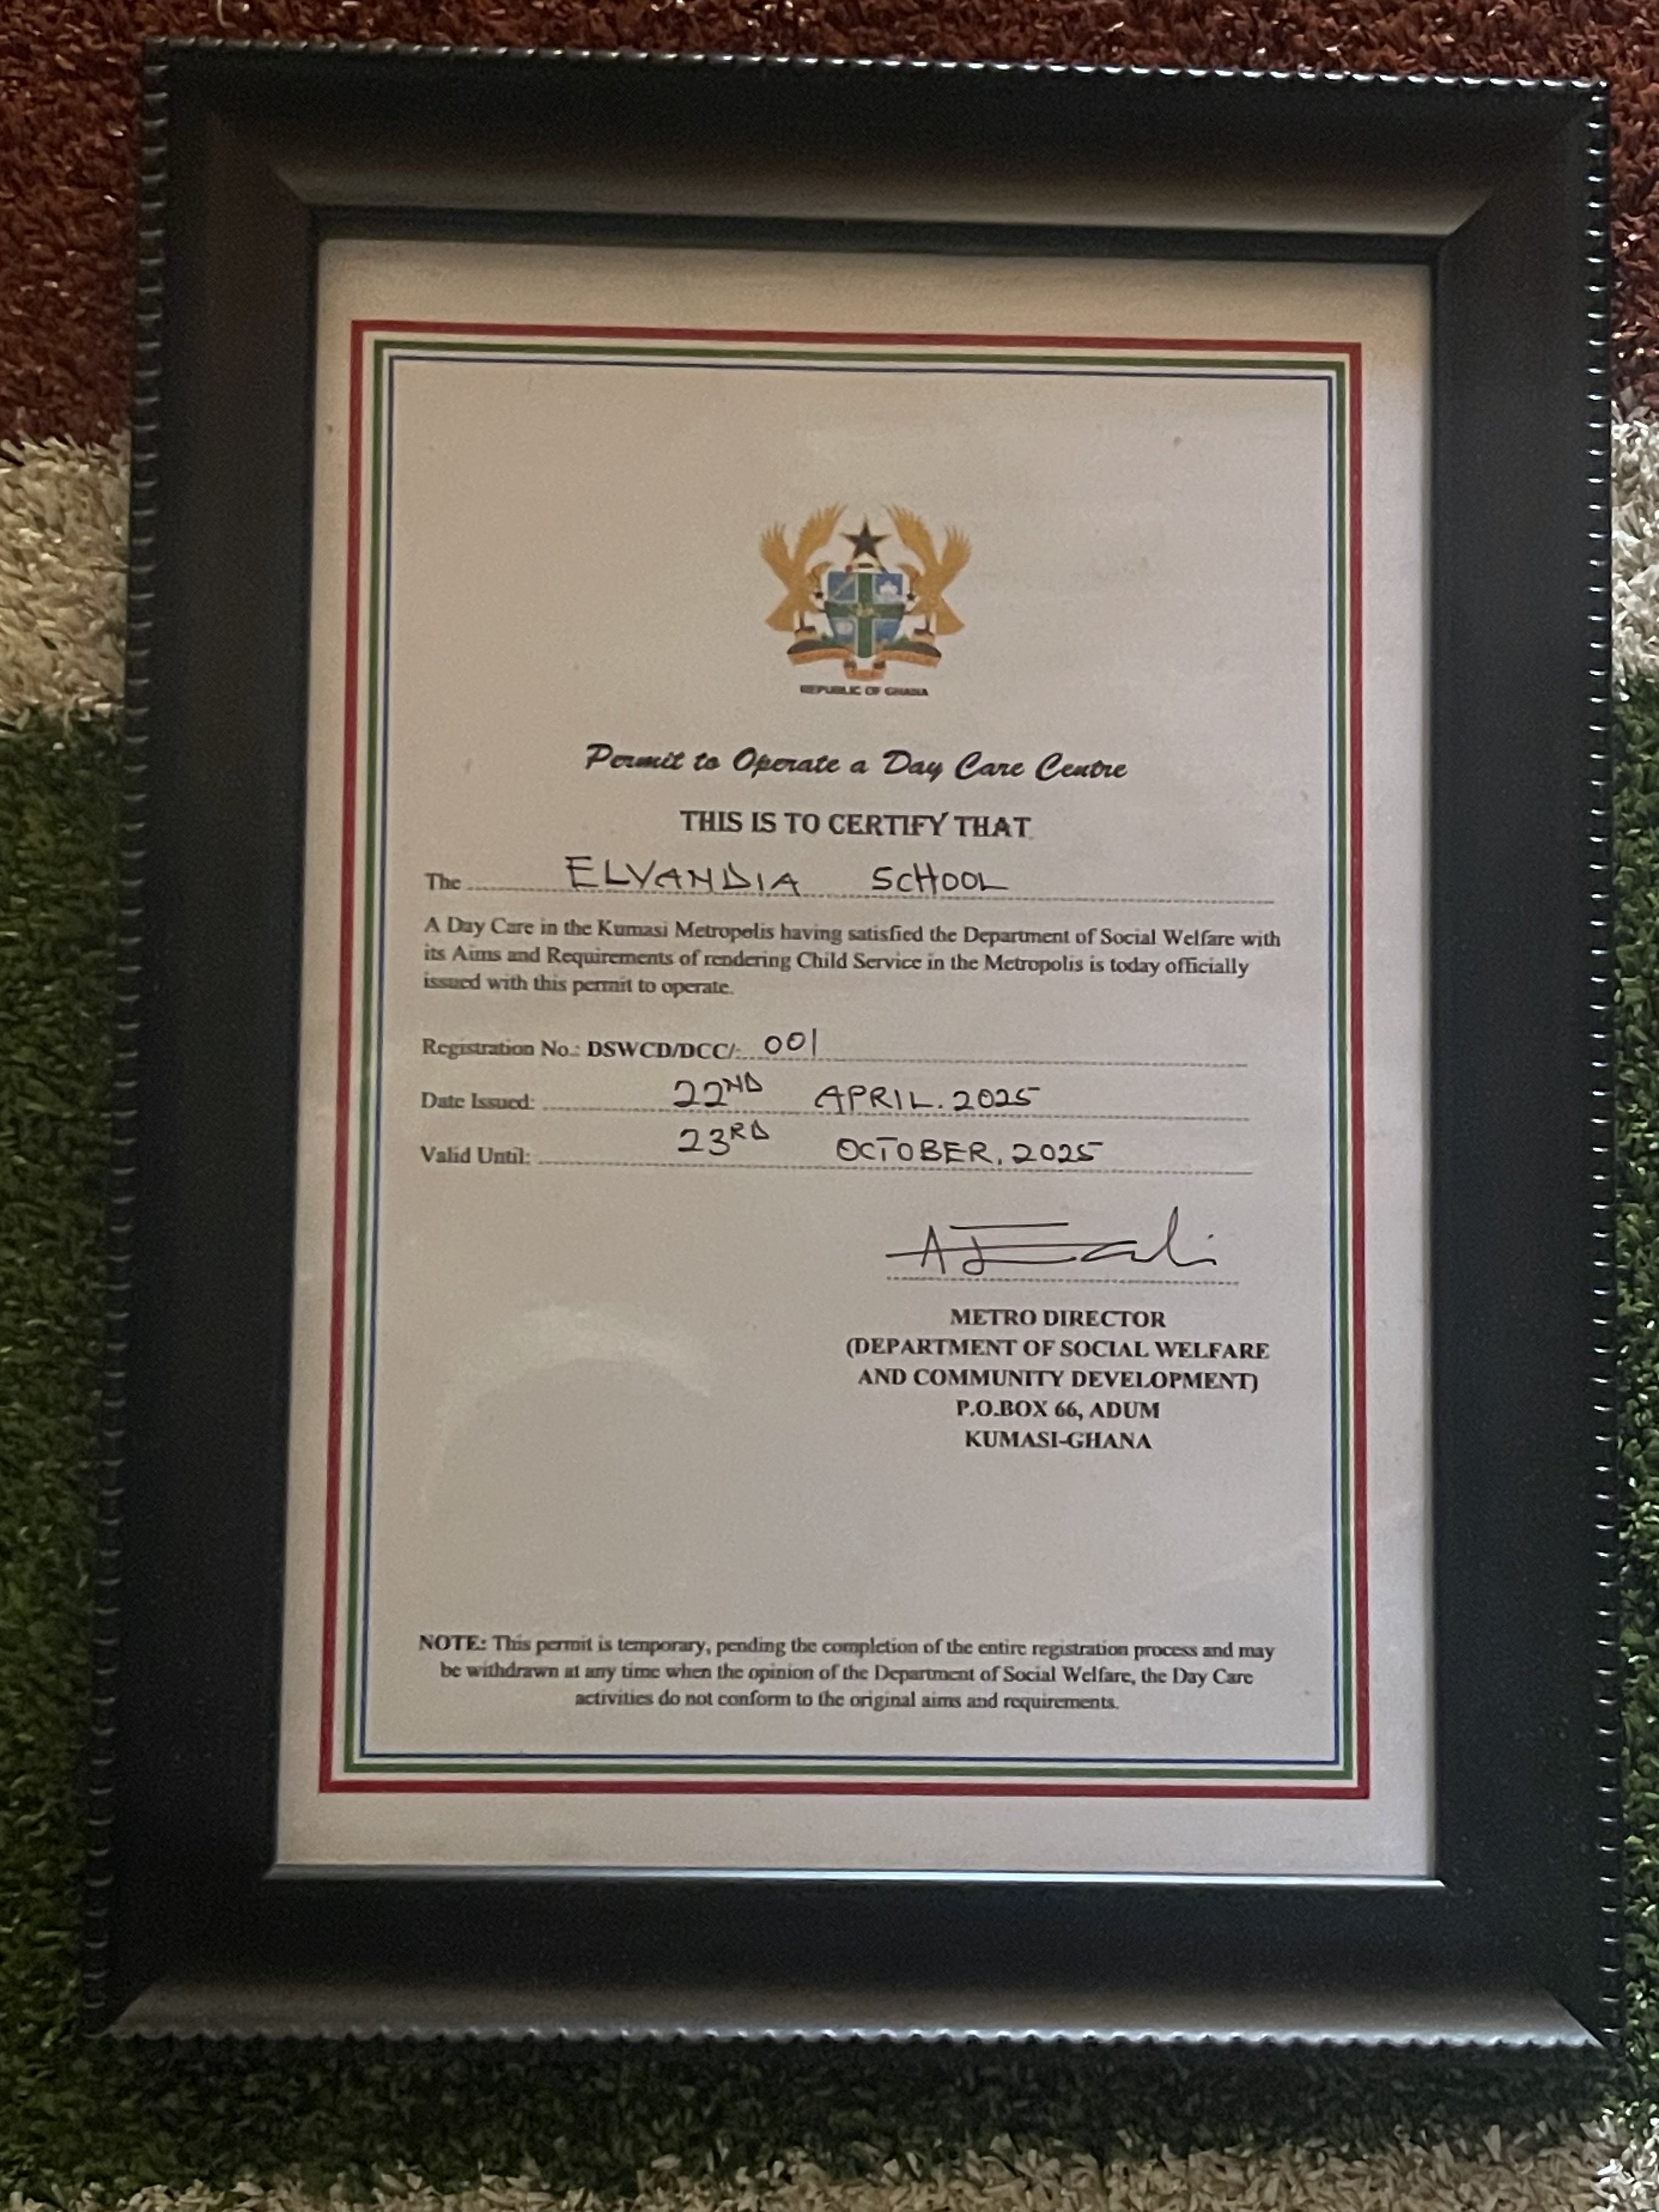 REPUBLIC OF GHANA
Permit to Operate a Day Care Centre
THIS IS TO CERTIFY THAT
The ELVANDIA SCHOOL
A Day Care in the Kumasi Metropolis having satisfied the Department of Social Welfare with
its Aims and Requirements of rendering Child Service in the Metropolis is today officially
issued with this permit to operate.
Registration No.: DSWCD/DCC/- 001
Date Issued: 22ND APRIL. 2025
Valid Until: 23RD OCTOBER, 2025
METRO DIRECTOR
(DEPARTMENT OF SOCIAL WELFARE
AND COMMUNITY DEVELOPMENT)
P.O.BOX 66, ADUM
KUMASI-GHANA
NOTE: This permit is temporary, pending the completion of the entire registration process and may
be withdrawn at any time when the opinion of the Department of Social Welfare, the Day Care
activities do not conform to the original aims and requirements.